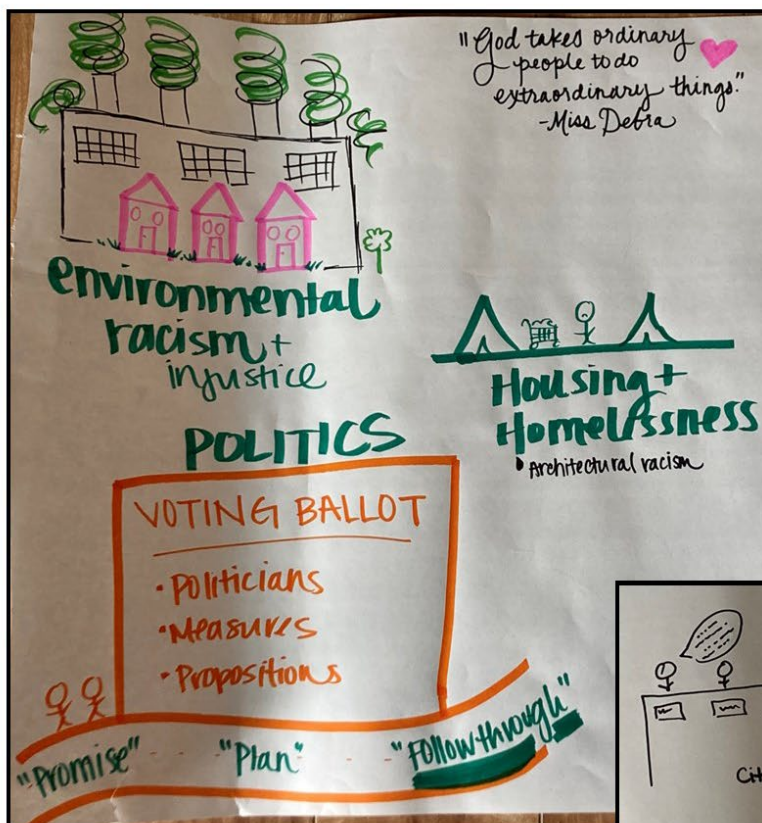 "God takes ordinary
people to do
extraordinary things."
-Miss Debra
environmental
racism +
injustice
Housing +
Homelessness
• Architectural racism
POLITICS
VOTING BALLOT
• Politicians
• Measures
• Propositions
"Promise" - - - "Plan" - - - "Follow through"